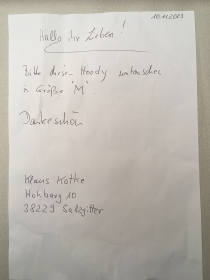 10.11.2023
Hallo ihr Lieben!
Bitte diesen Hoody umtauschen
in Größe "M"
Dankeschön
Klaus Kothe
Hohberg 10
38229 Salzgitter